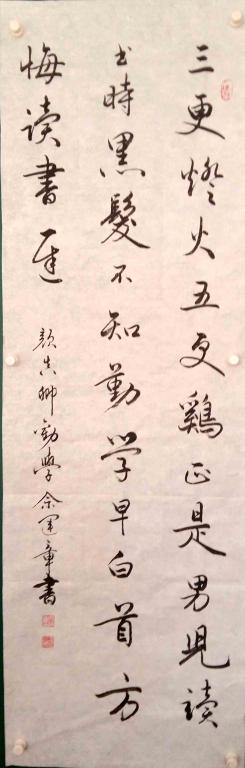 三更燈火五更鷄正是男児讀
书時黑髮不知勤学早白首方
悔读書遲
顔真卿勸學 余運章書